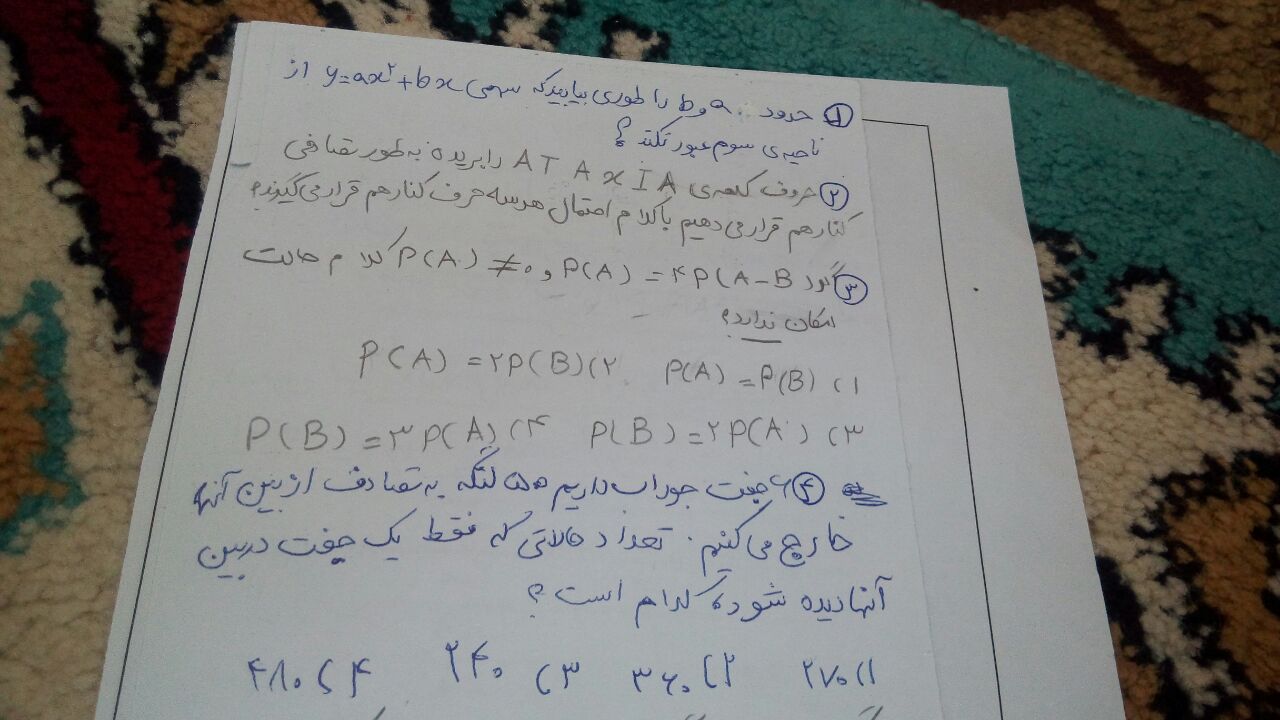 ① حدود a و b را طوری بیابید که سهمی y=ax²+bx از
ناحیه ی سوم عبور نکند؟
② حروف کلمه ی A T A x I A را بریده به طور تصادفی
کنار هم قرار می دهیم با کدام احتمال هر سه حرف کنار هم قرار می گیرند؟
③ اگر P(A) = ۴P(A-B و P(A) ≠ ۰ کدام حالت
امکان ندارد؟
۱) P(A) = P(B) ۲) P(A) = ۲P(B)
۳) P(B) = ۲P(A) ۴) P(B) = ۳P(A)
④ ۶ جفت جوراب داریم ۵ لنگه به تصادف از بین آنها
خارج می کنیم. تعداد حالاتی که فقط یک جفت دربین
آنها دیده شود کدام است؟
۱) ۲۷۰ ۲) ۳۶۰ ۳) ۲۴۰ ۴) ۴۸۰